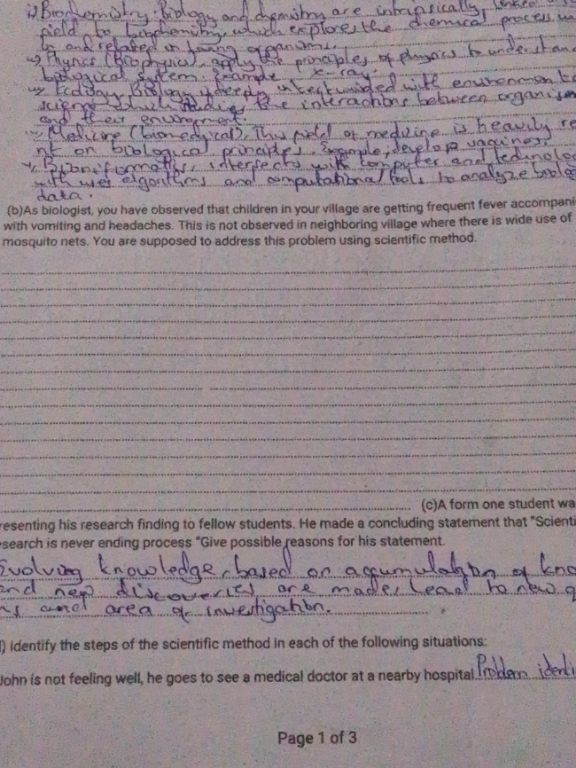 Biochemistry, Biology and chemistry are intrinsically linked
field to biochemistry, which explores the chemical process
and related in living organisms.
Physics (Biophysics), apply the principles of physics to understan
biological system. Example x-ray.
Ecology, Biology is deeply with environment
science which the interactions between organism
and their environment.
Medicine (biomedical), This field of medicine is heavily re
nt on biological principles. Example, develop vaccines.
Bioinformatics, intersects with computer and technolo
with uses algorithms and computational tools to analyze biolog
data.
(b)As biologist, you have observed that children in your village are getting frequent fever accompani
with vomiting and headaches. This is not observed in neighboring village where there is wide use of
mosquito nets. You are supposed to address this problem using scientific method.
(c)A form one student wa
resenting his research finding to fellow students. He made a concluding statement that "Scienti
esearch is never ending process "Give possible reasons for his statement.
Evolving knowledge, based on accumulation of kno
and new discoveries are made, lead to new q
ns and area of investigation.
) identify the steps of the scientific method in each of the following situations:
John is not feeling well, he goes to see a medical doctor at a nearby hospital Problem identi
Page 1 of 3